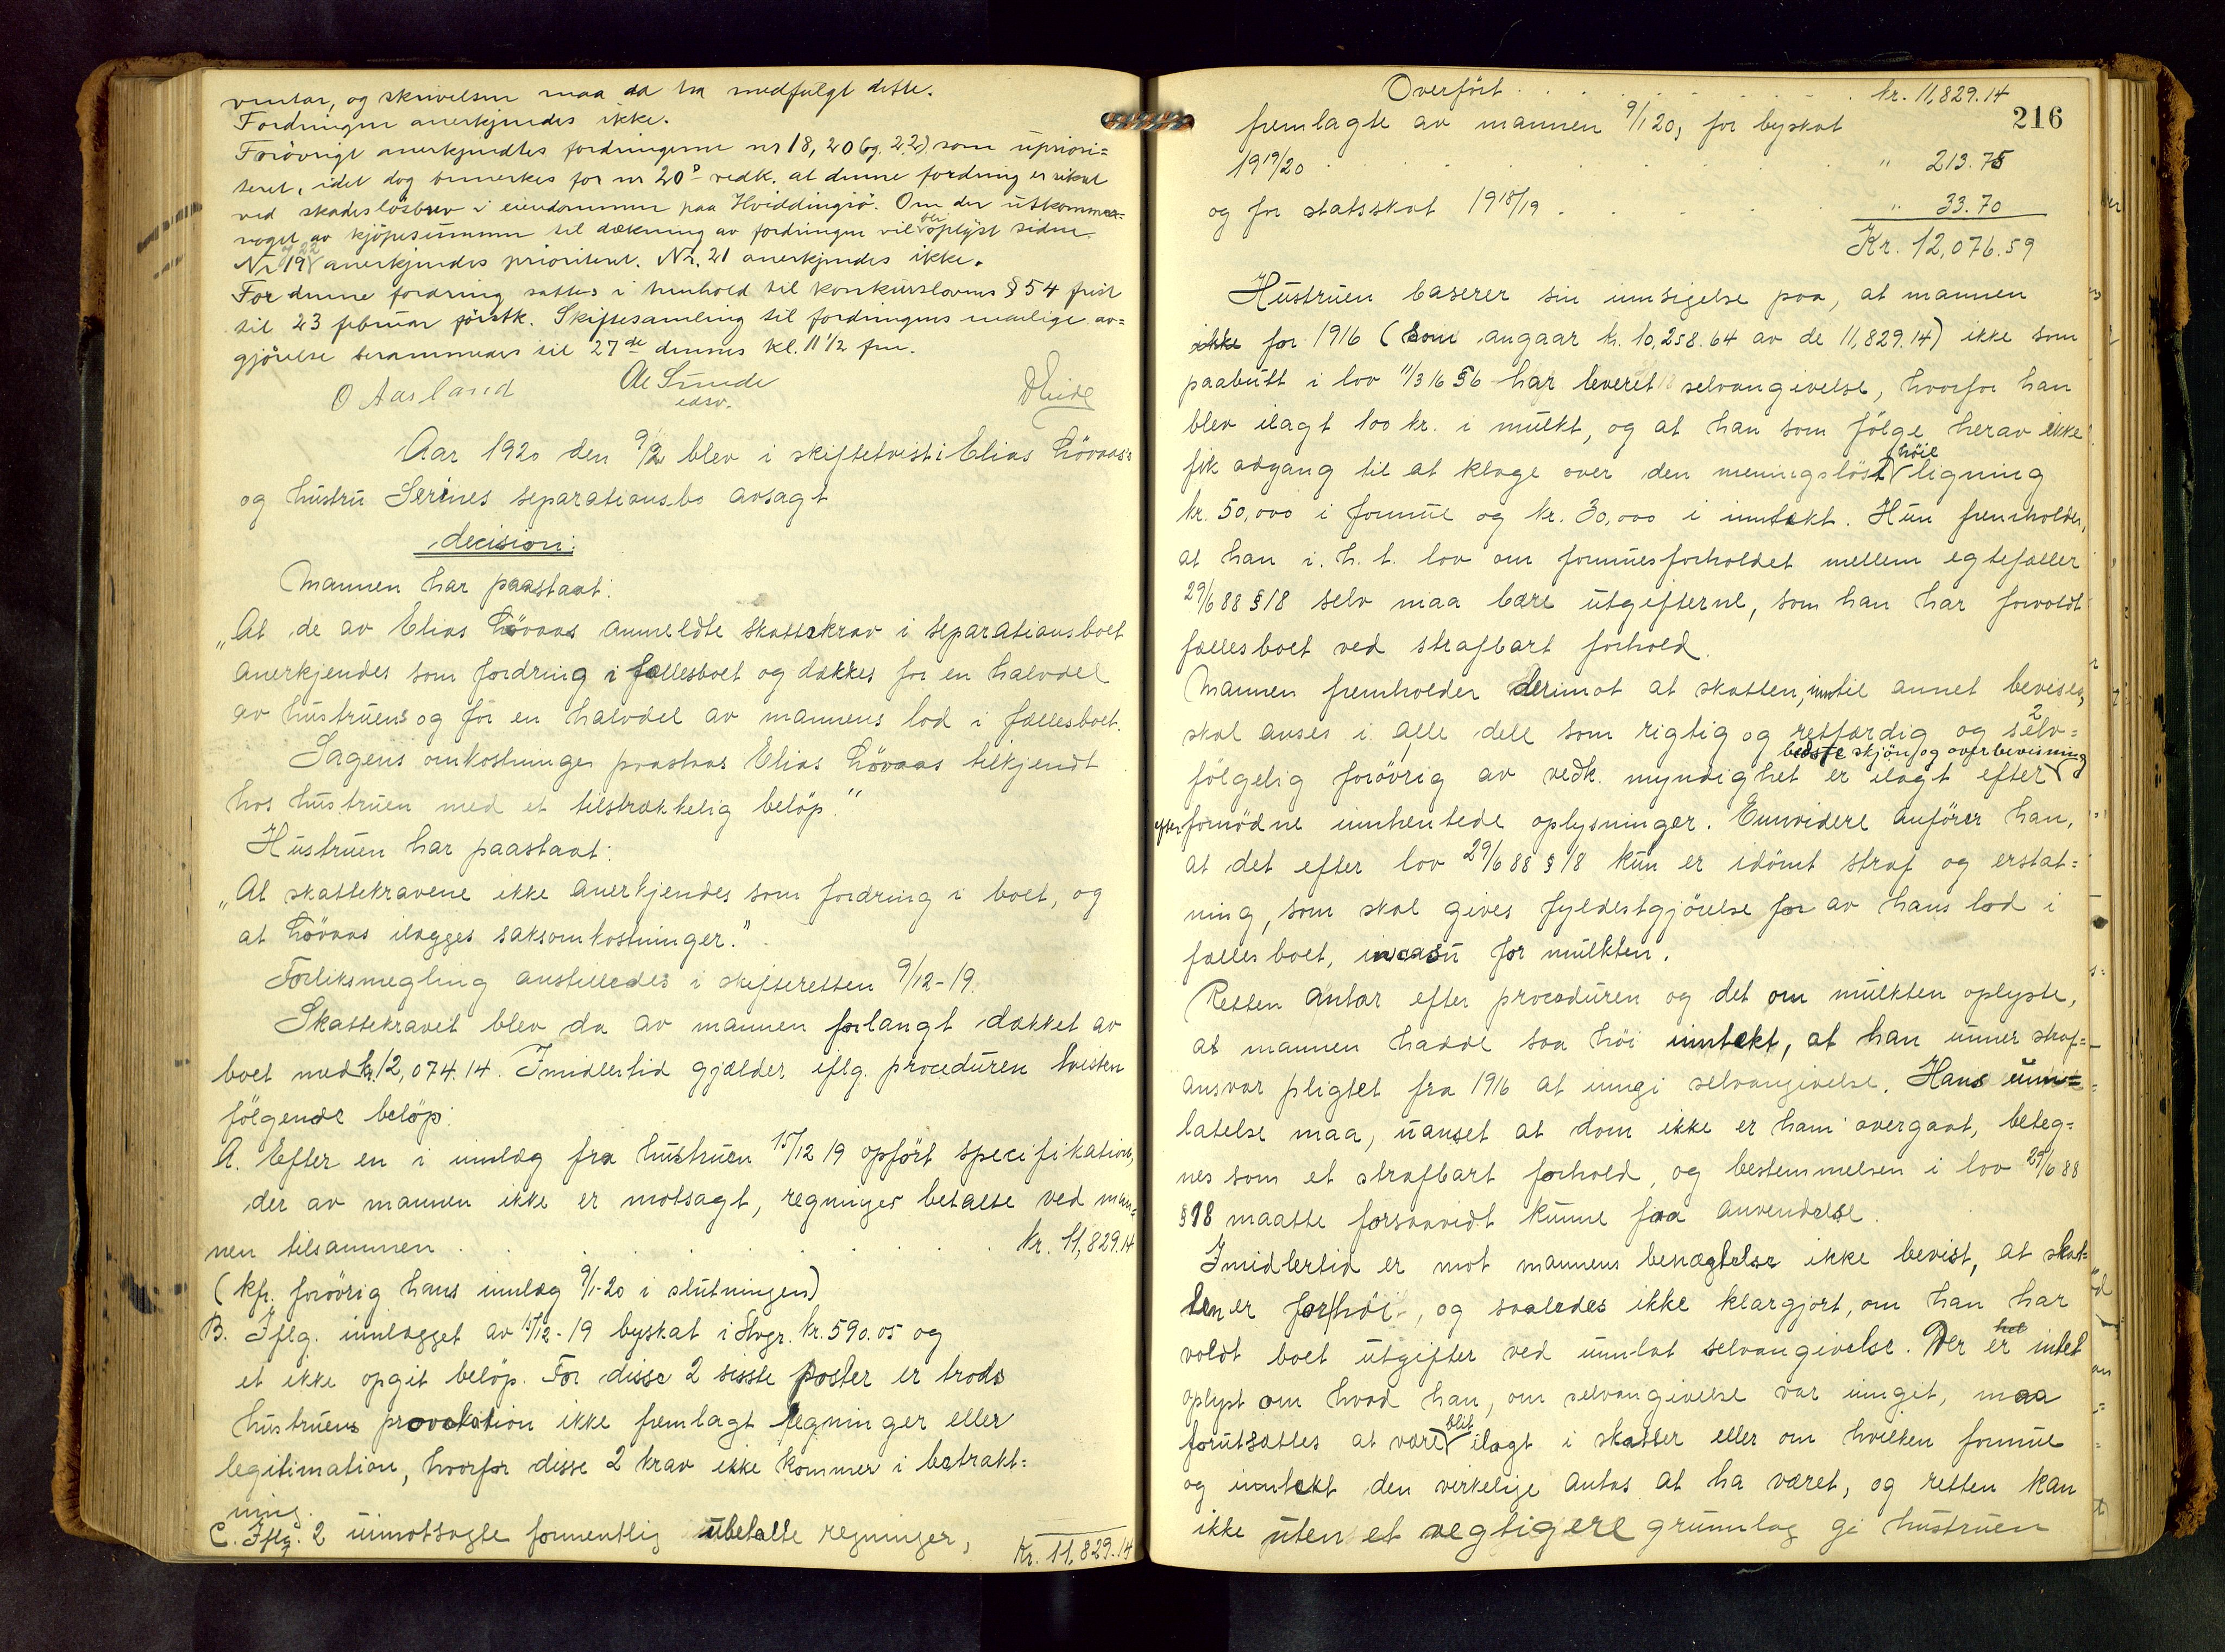 ventar, og skrivelsen maa da ha medfulgt dette.
Fordringen anerkjendes ikke.
Forövrigt anerkjendtes fordringerne nr 18, 20 (og. 22) som upriori=
teret, idet dog bemerkes for nr 20's vedk. at denne fordring er sikret
ved skadeslösbrev i eiendommen paa Hviddingsö. Om der utkommer
noget av kjöpesummen til dækning av fordringen vil bli oplyst siden.
Nr 19 og 22 anerkjendes prioriteret. Nr. 21 anerkjendes ikke.
For denne fordring sattes i henhold til konkurslovens § 54 frist
til 23 februar förstk. Skiftesamling til fordringens endelige av=
gjörelse berammedes til 27de dennes kl. 11 1/2 fm.
O Aarland
Ae Sunde
edsv.
D Eide
Aar 1920 den 9/2 blev i skiftetvist i Elias Lövaas
og hustru Serines separationsbo avsagt
decision:
Mannen har paastaat:
„At de av Elias Lövaas anmeldte skattekrav i separationsboet
anerkjendes som fordring i fællesboet og dækkes for en halvdel
av hustruens og for en halvdel av mannens lod i fællesboet.
Sagens omkostninger paastaas Elias Lövaas tilkjendt
hos hustruen med et tilstrækkelig belöp."
Hustruen har paastaat:
„At skattekravene ikke anerkjendes som fordring i boet, og
at Lövaas ilægges saksomkostninger."
Forliksmegling anstilledes i skifteretten 9/12-19.
Skattekravet blev da av mannen forlangt dækket av
boet med kr. 12,074.14. Imidlertid gjælder iflg. proceduren tvisten
fölgende belöp:
A. Efter en i innlæg fra hustruen 15/12 19 opfört specifikation,
der av mannen ikke er motsagt, regninger betalte ved man=
nen tilsammen . . . . . . . . . kr. 11,829.14
(kfr. forövrig hans innlæg 9/1-20 i slutningen)
B. Iflg. innlægget av 15/12-19 byskat i Hvgr. kr. 590.05 og
et ikke opgit belöp. For disse 2 sisste poster er trods
hustruens provokation ikke fremlagt regninger eller
legitimation, hvorfor disse 2 krav ikke kommer i betrakt=
ning.
C. Iflg. 2 uimotsagte formentlig ubetalte regninger,
Kr. 11,829.14
Overfört . . . . . . . . kr. 11,829.14
216
fremlagte av mannen 9/1 20, for byskat
1919/20 . . . . . . . . " 213.75
og for statsskat 1918/19 . . . . . " 33.70
Kr. 12,076.59
Hustruen baserer sin innsigelse paa, at mannen
ikke for 1916 (som angaar kr. 10,258.64 av de 11,829.14) ikke som
paabutt i lov 11/3 16 § 6 har leveret selvangivelse, hvorfor han
blev ilagt 100 kr. i mulkt, og at han som fölge herav ikke
fik adgang til at klage over den meningslöst höie ligning
kr. 50,000 i formue og kr. 30,000 i inntækt. Hun fremholder,
at han i. h. t. lov om formuesforholdet mellem egtefæller
29/6 88 § 18 selv maa bære utgifterne, som han har forvoldt
fællesboet ved strafbart forhold.
Mannen fremholder derimot at skatten, inntil annet bevises,
skal anses i alle dele som rigtig og retfærdig og selv=
fölgelig forövrig av vedk. myndighet er ilagt efter bedste skjön og overbevisning
efter fornödne innhentede oplysninger. Eunvidere anförer han,
at det efter lov 29/6 88 § 18 kun er idömt straf og erstat=
ning, som skal gives fyldestgjörelse for av hans lod i
fællesboet, in casu for mulkten.
Retten antar efter proceduren og det om mulkten oplyste,
at mannen hadde saa höi inntekt, at han unner straf=
ansvar pligtet fra 1916 at inngi selvangivelse. Hans unn=
latelse maa, uanset at dom ikke er ham overgaat, beteg=
nes som et strafbart forhold, og bestemmelsen i lov 29/6 88
§ 18 maatte forsaavidt kunne faa anvendelse.
Imidlertid er mot mannens benægtelse ikke bevist, at skat=
ten er for höi, og saaledes ikke klargjort, om han har
voldt boet utgifter ved unnlat selvangivelse. Der er intet
oplyst om hvad han, om selvangivelse var innget, maa
forutsættes at være blit ilagt i skatter eller om hvilken formue
og inntekt den virkelige antas at ha været, og retten kan
ikke uten et vegtigere grunnlag gi hustruen